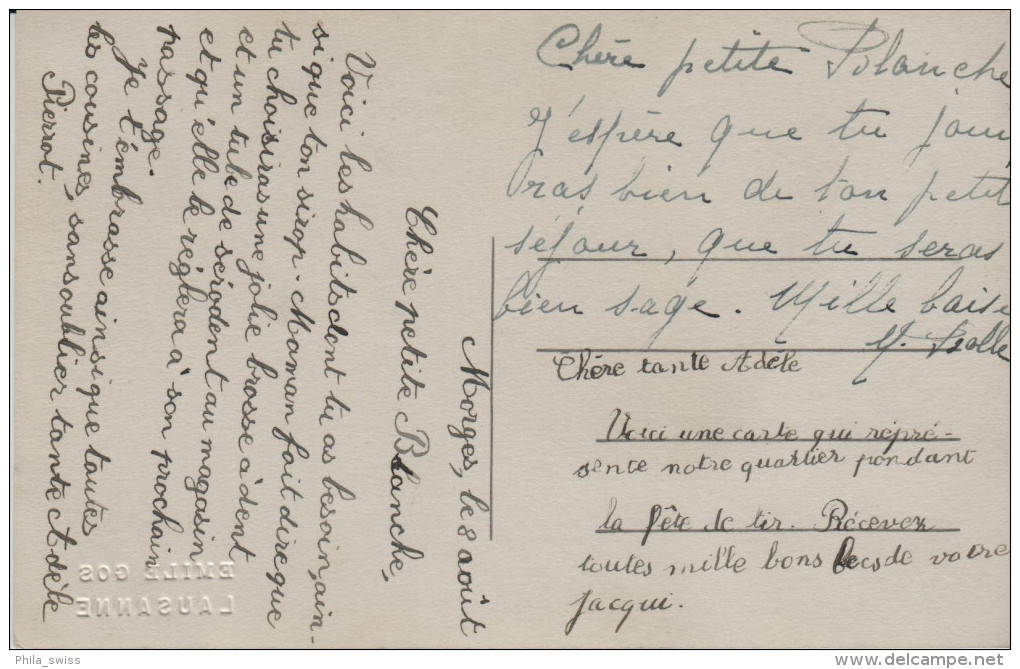 Morges, le 8 août
Chère petite Blanche,
Voici les habits dont tu as besoin, ain-
si que ton sirop. Maman fait dire que
tu choisiras une jolie brosse à dent
et un tube de sérodent au magasin
et qu'elle le règlera à son prochain
passage.
Je t'embrasse ainsi que toutes
les cousines, sans oublier tante Adèle
Pierrot.
Chère petite Blanche
J'espère que tu joui
ras bien de ton petit
séjour, que tu seras
bien sage. Mille baise
Chère tante Adèle
Voici une carte qui repré-
sente notre quartier pendant
la fête de tir. Recevez
toutes mille bons becs de votre
Jacqui.
EMILE GOS
LAUSANNE
Phila_swiss
www.delcampe.net